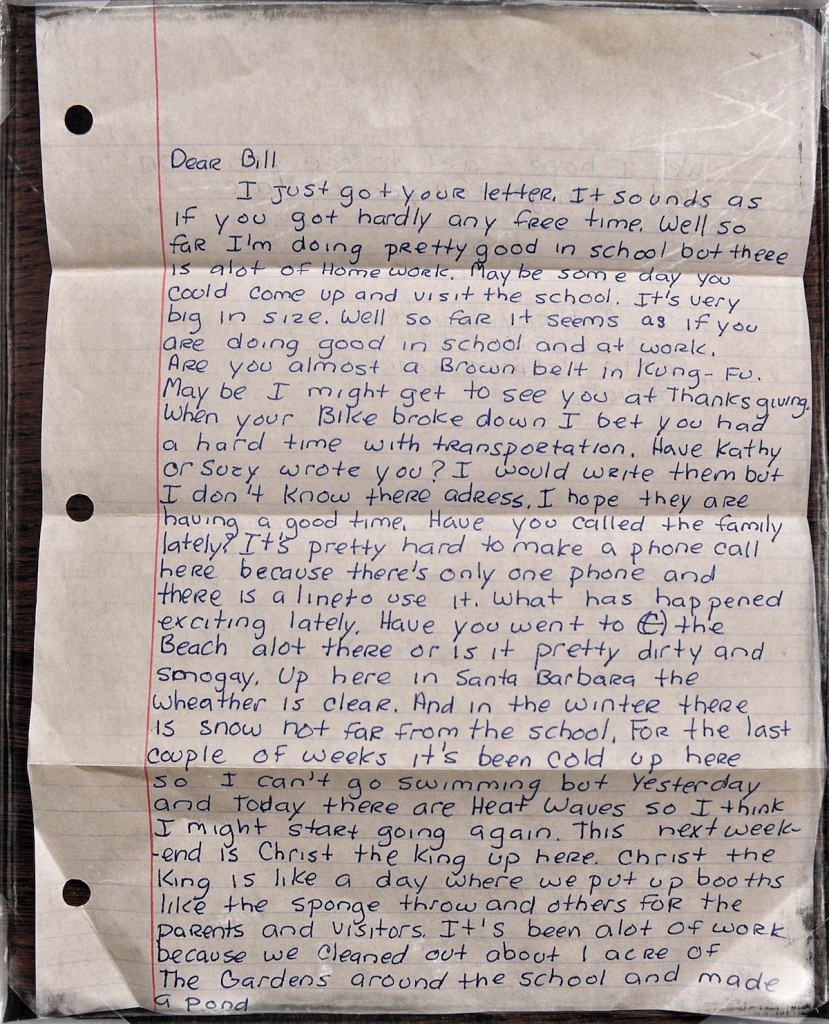 Dear Bill
I just got your letter. It sounds as
if you got hardly any free time. Well so
far I'm doing pretty good in school but there
is alot of Home work. May be some day you
could come up and visit the school. It's very
big in size. Well so far it seems as if you
are doing good in school and at work.
Are you almost a Brown belt in Kung-Fu.
May be I might get to see you at Thanksgiving.
When your Bike broke down I bet you had
a hard time with transportation. Have Kathy
or Suzy wrote you? I would write them but
I don't know there adress. I hope they are
having a good time. Have you called the family
lately? It's pretty hard to make a phone call
here because there's only one phone and
there is a line to use it. What has happened
exciting lately. Have you went to the
Beach alot there or is it pretty dirty and
smogay. Up here in Santa Barbara the
wheather is clear. And in the winter there
is snow not far from the school. For the last
couple of weeks it's been cold up here
so I can't go swimming but Yesterday
and Today there are Heat Waves so I think
I might start going again. This next week-
-end is Christ the King up here. Christ the
King is like a day where we put up booths
like the sponge throw and others for the
parents and visitors. It's been alot of work
because we cleaned out about 1 acre of
The Gardens around the school and made
a pond